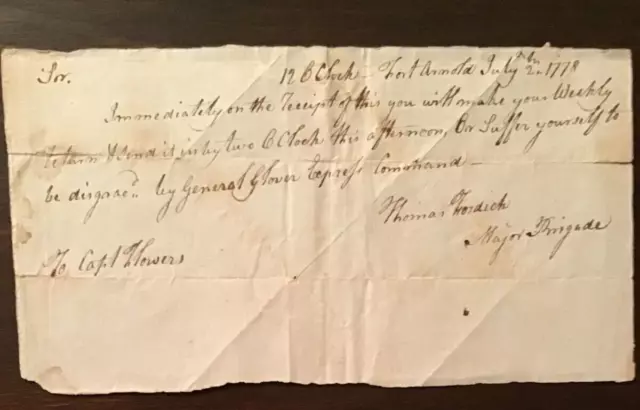 Sor. 12 O Clock - Fort Arnold July 2th 1778
Immediately on the Receipt of this you will make your Weekly
Return & Send it in by two O Clock this afternoon, Or Suffer yourself to
be disgrac'd by General Glover Express Command -
Thomas Fosdick
Major Brigade
To Capt Flowers